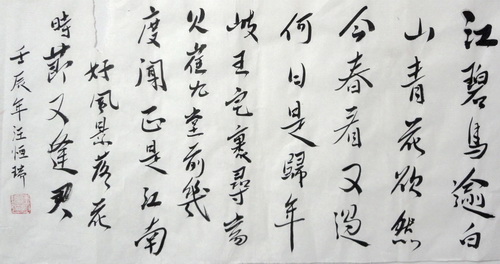 江碧鳥逾白
山青花欲然
今春看又過
何日是歸年
岐王宅裏尋常
见崔九堂前幾
度聞正是江南
好風景落花
時節又逢君
壬辰年汪恒瑞